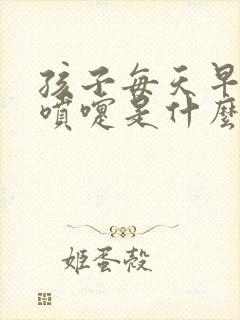 孩子每天早
噴嚏是什麼
姬蛋殼